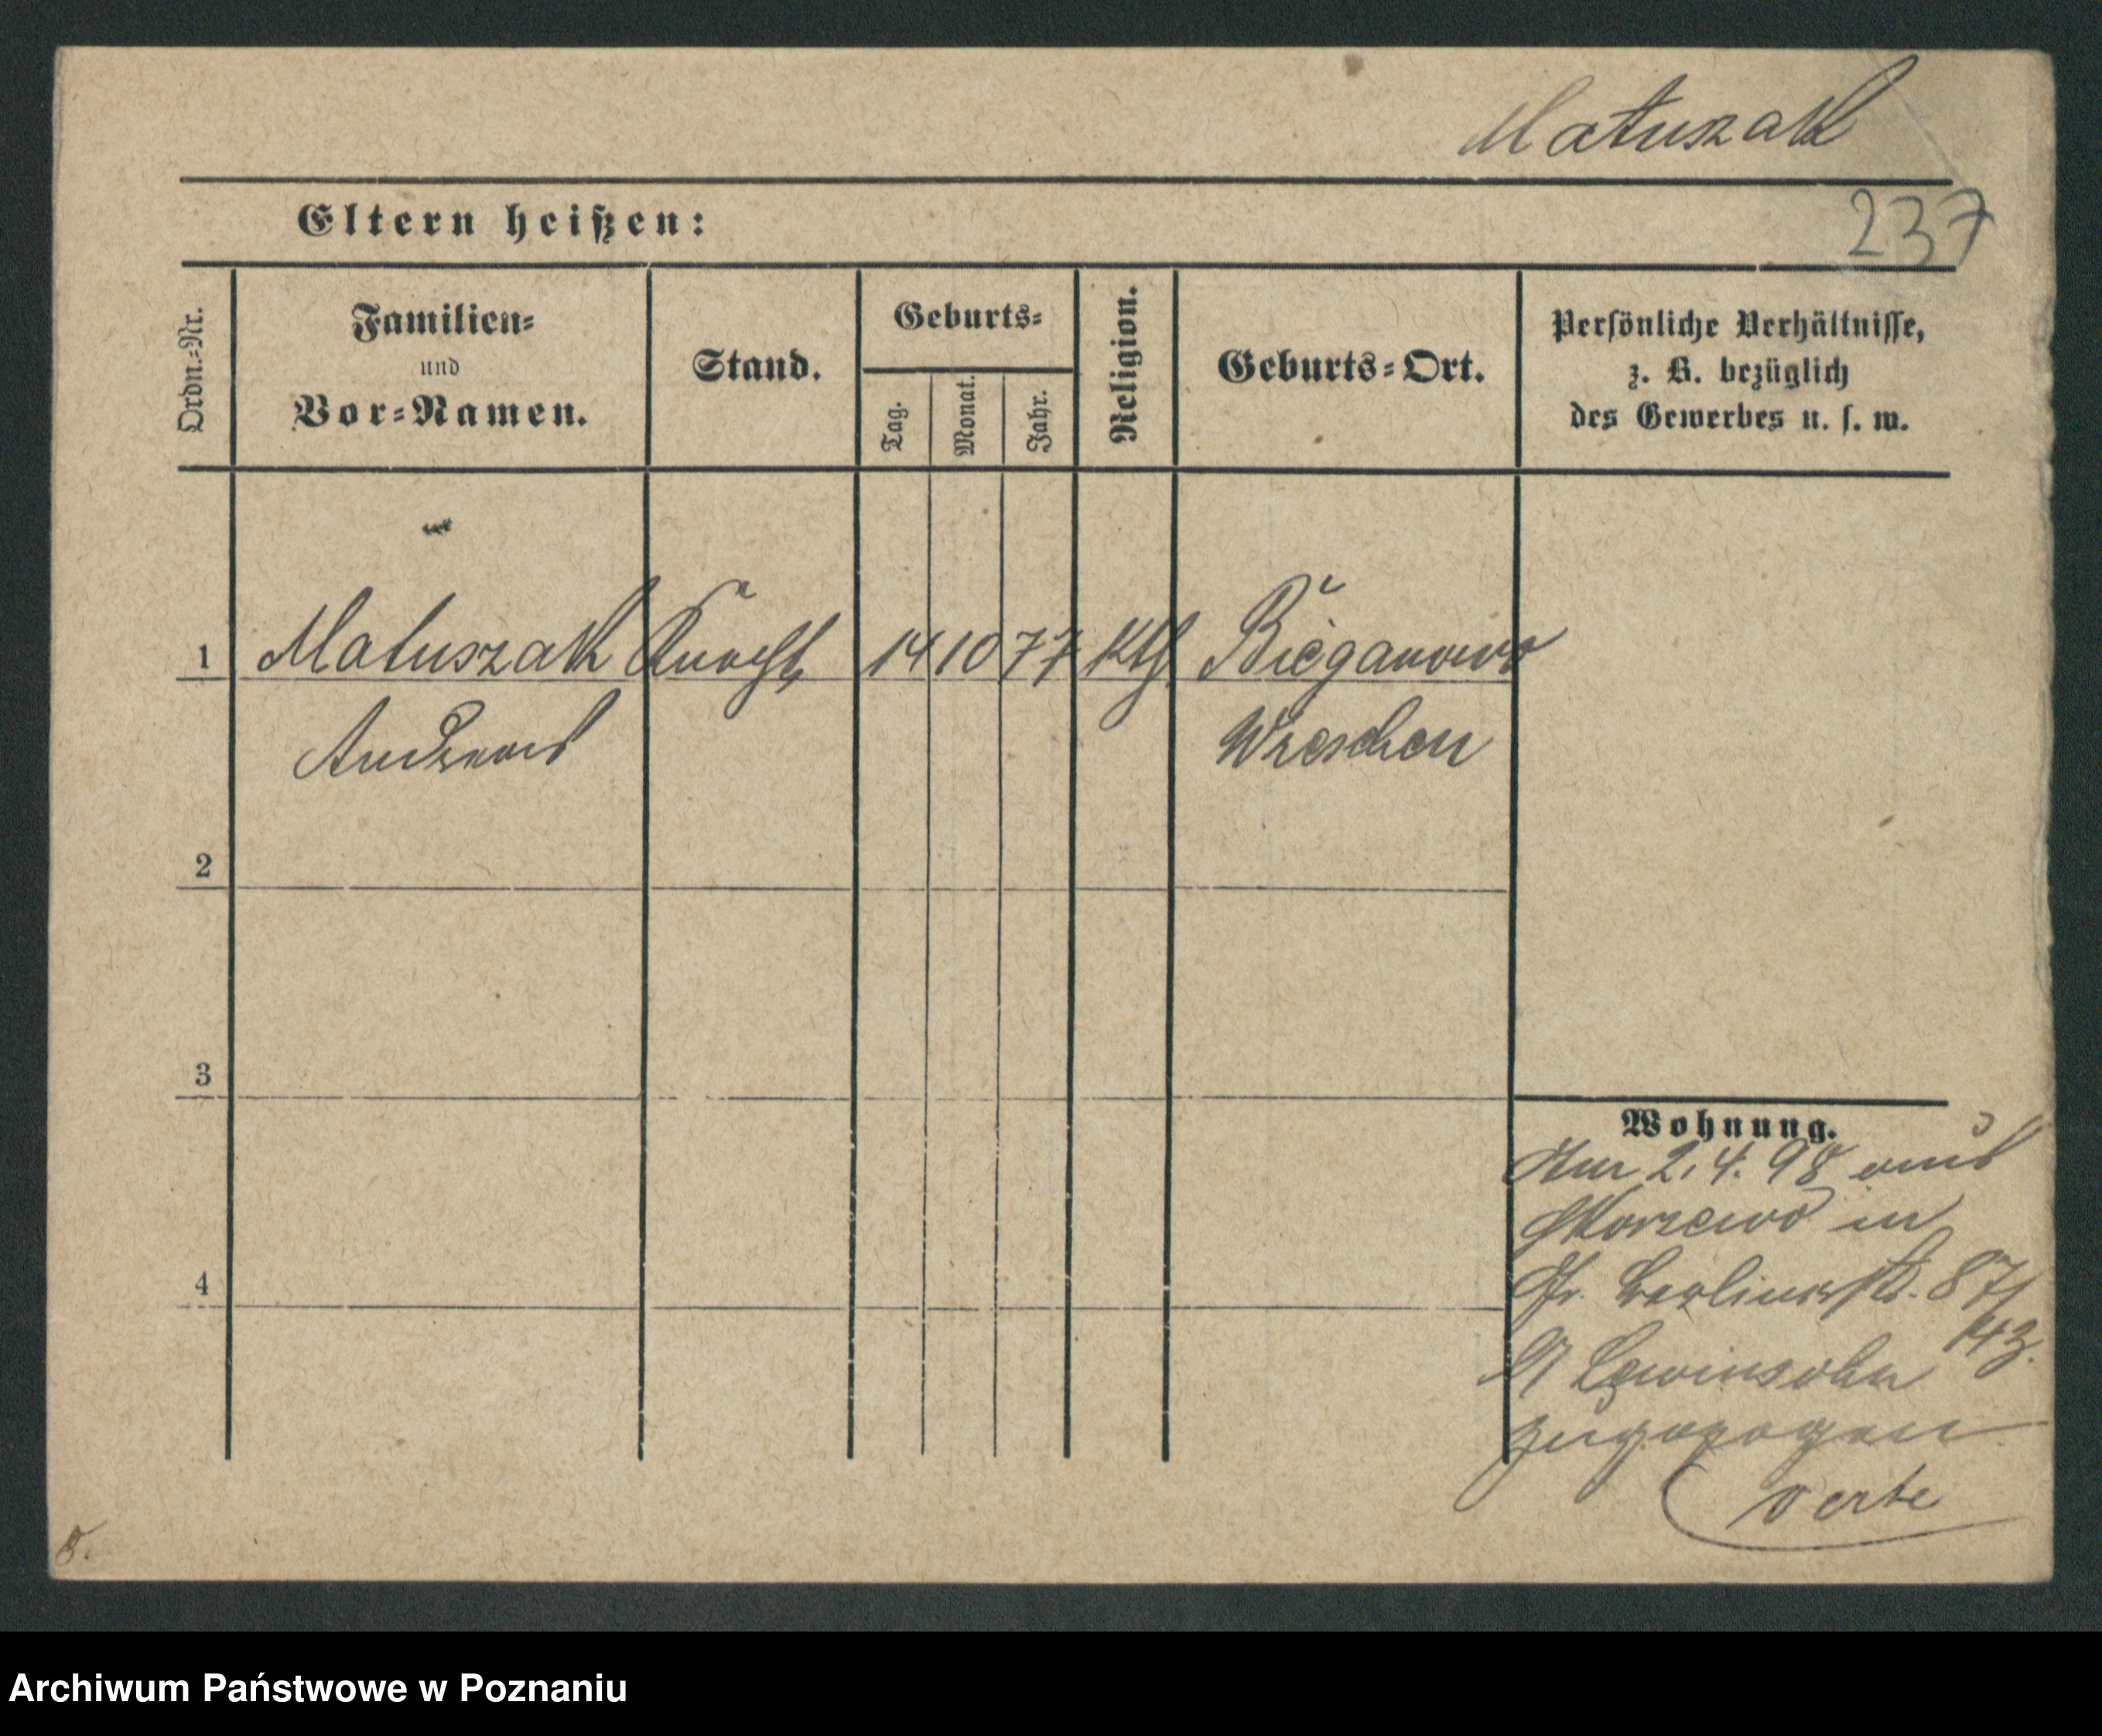 Matuszak
237
Eltern heißen:
Ordn.-Nr.
Familien-
und
Vor-Namen.
Stand.
Geburts-
Tag.
Monat.
Jahr.
Religion.
Geburts-Ort.
Persönliche Verhältnisse,
z. B. bezüglich
des Gewerbes u. s. w.
1 Matuszak Knecht 14 10 77 Kth Bieganowo
Andreas Wreschen
2
3
4
Wohnung.
Am 2.4.98 aus
in
Gr. Berlinerstr. 87/
143.
Lewinsohn
zugezogen
verte
8.
Archiwum Państwowe w Poznaniu